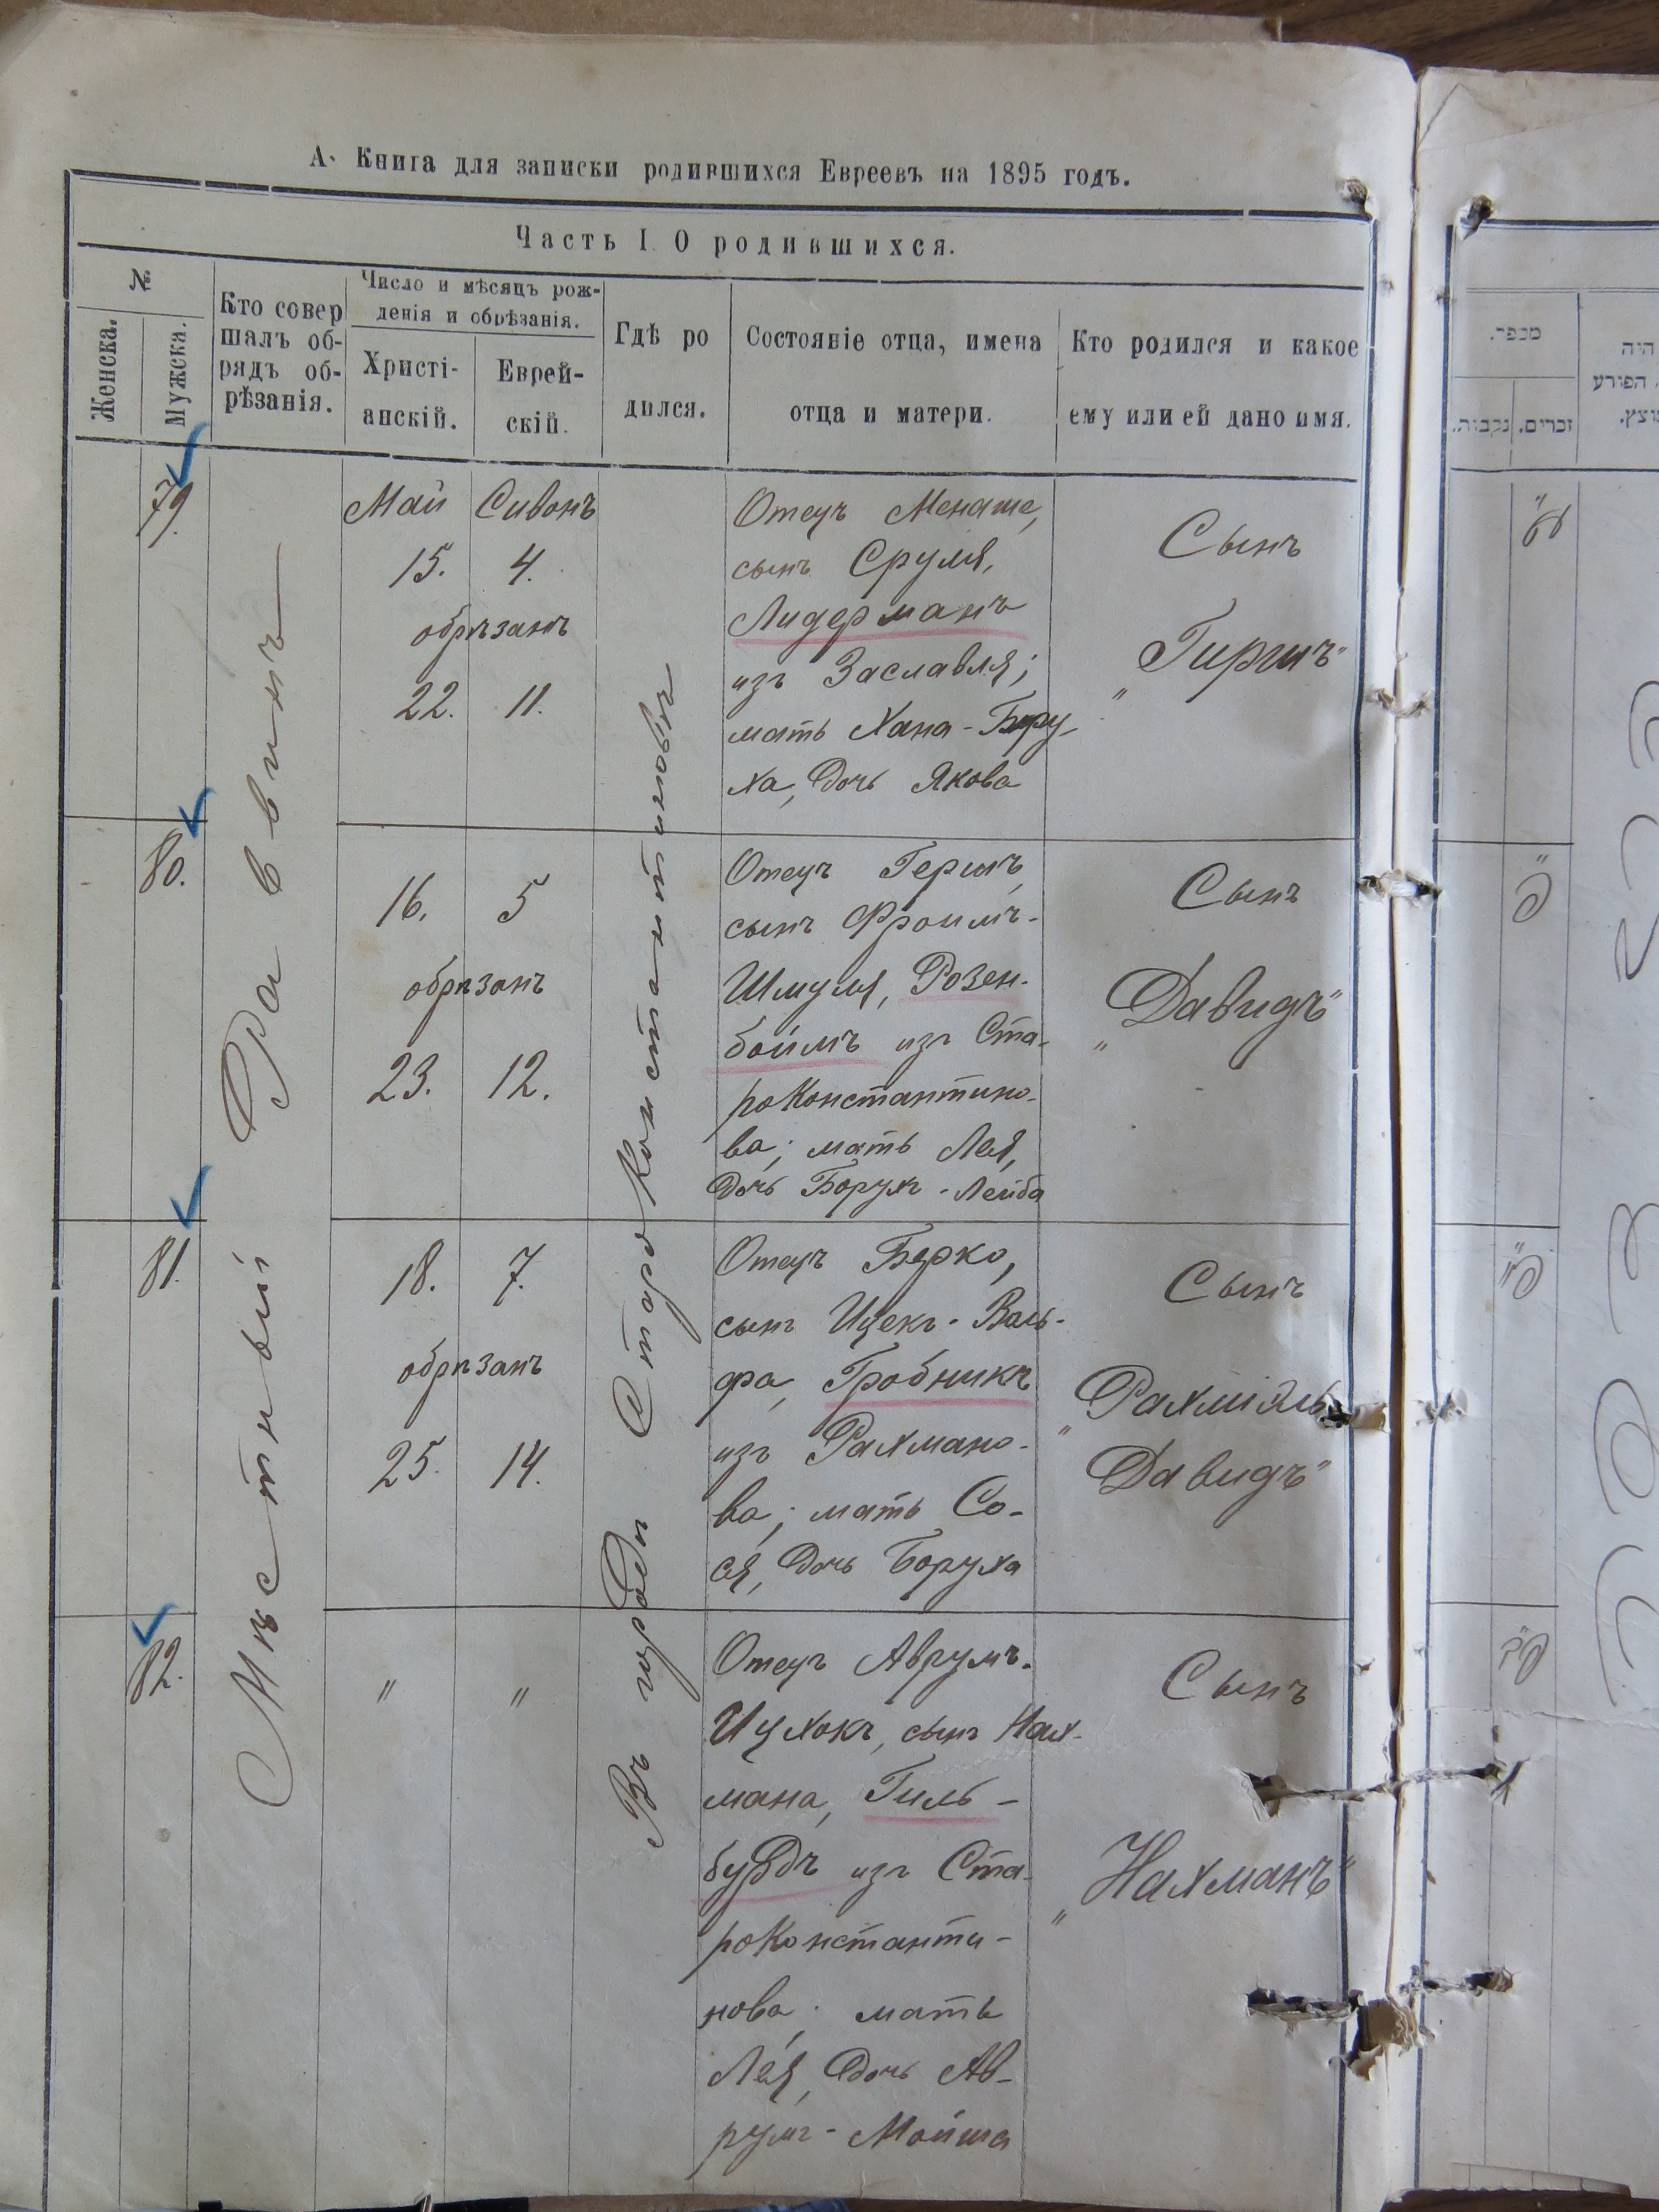 А. Книга для записки родившихся Евреевъ на 1895 годъ.
Часть I. О родившихся.
№
Женска.
Мужска.
Кто совер
шалъ об-
рядъ об-
рѣзанія.
Число и мѣсяцъ рож-
денія и обрѣзанія.
Христі-
анскій.
Еврей-
скій.
Гдѣ ро
дился.
Состояніе отца, имена
отца и матери.
Кто родился и какое
ему или ей дано имя.
Мѣстный Раввинъ
Въ городѣ СтароКонстантиновѣ
79.
Май Сивонъ
15. 4.
обрѣзанъ
22. 11.
Отецъ Менаше,
сынъ Сруля,
Лидерманъ
изъ Заславля;
мать Хана-Бру-
ха, дочь Якова
Сынъ
„Гиршъ“
80.
16. 5
обрѣзанъ
23. 12.
Отецъ Гершъ,
сынъ Фроимъ-
Шмуля, Розен-
боймъ изъ Ста-
роКонстантино-
ва; мать Лея,
дочь Борухъ-Лейба
Сынъ
„Давидъ“
81.
18. 7.
обрѣзанъ
25. 14.
Отецъ Берко,
сынъ Ицекъ-Воль-
фа, Гробникъ
изъ Рахмано-
ва; мать Со-
ся, дочь Боруха
Сынъ
„Рахміэль
Давидъ“
82.
" "
Отецъ Аврумъ-
Ицхокъ, сынъ Нах-
мана, Гиль-
бурдъ изъ Ста-
роКонстанти-
нова; мать
Лея, дочь Ав-
румъ-Мойша
Сынъ
„Нахманъ“
מספר.
זכרים.
נקבות.
היה
הפורע